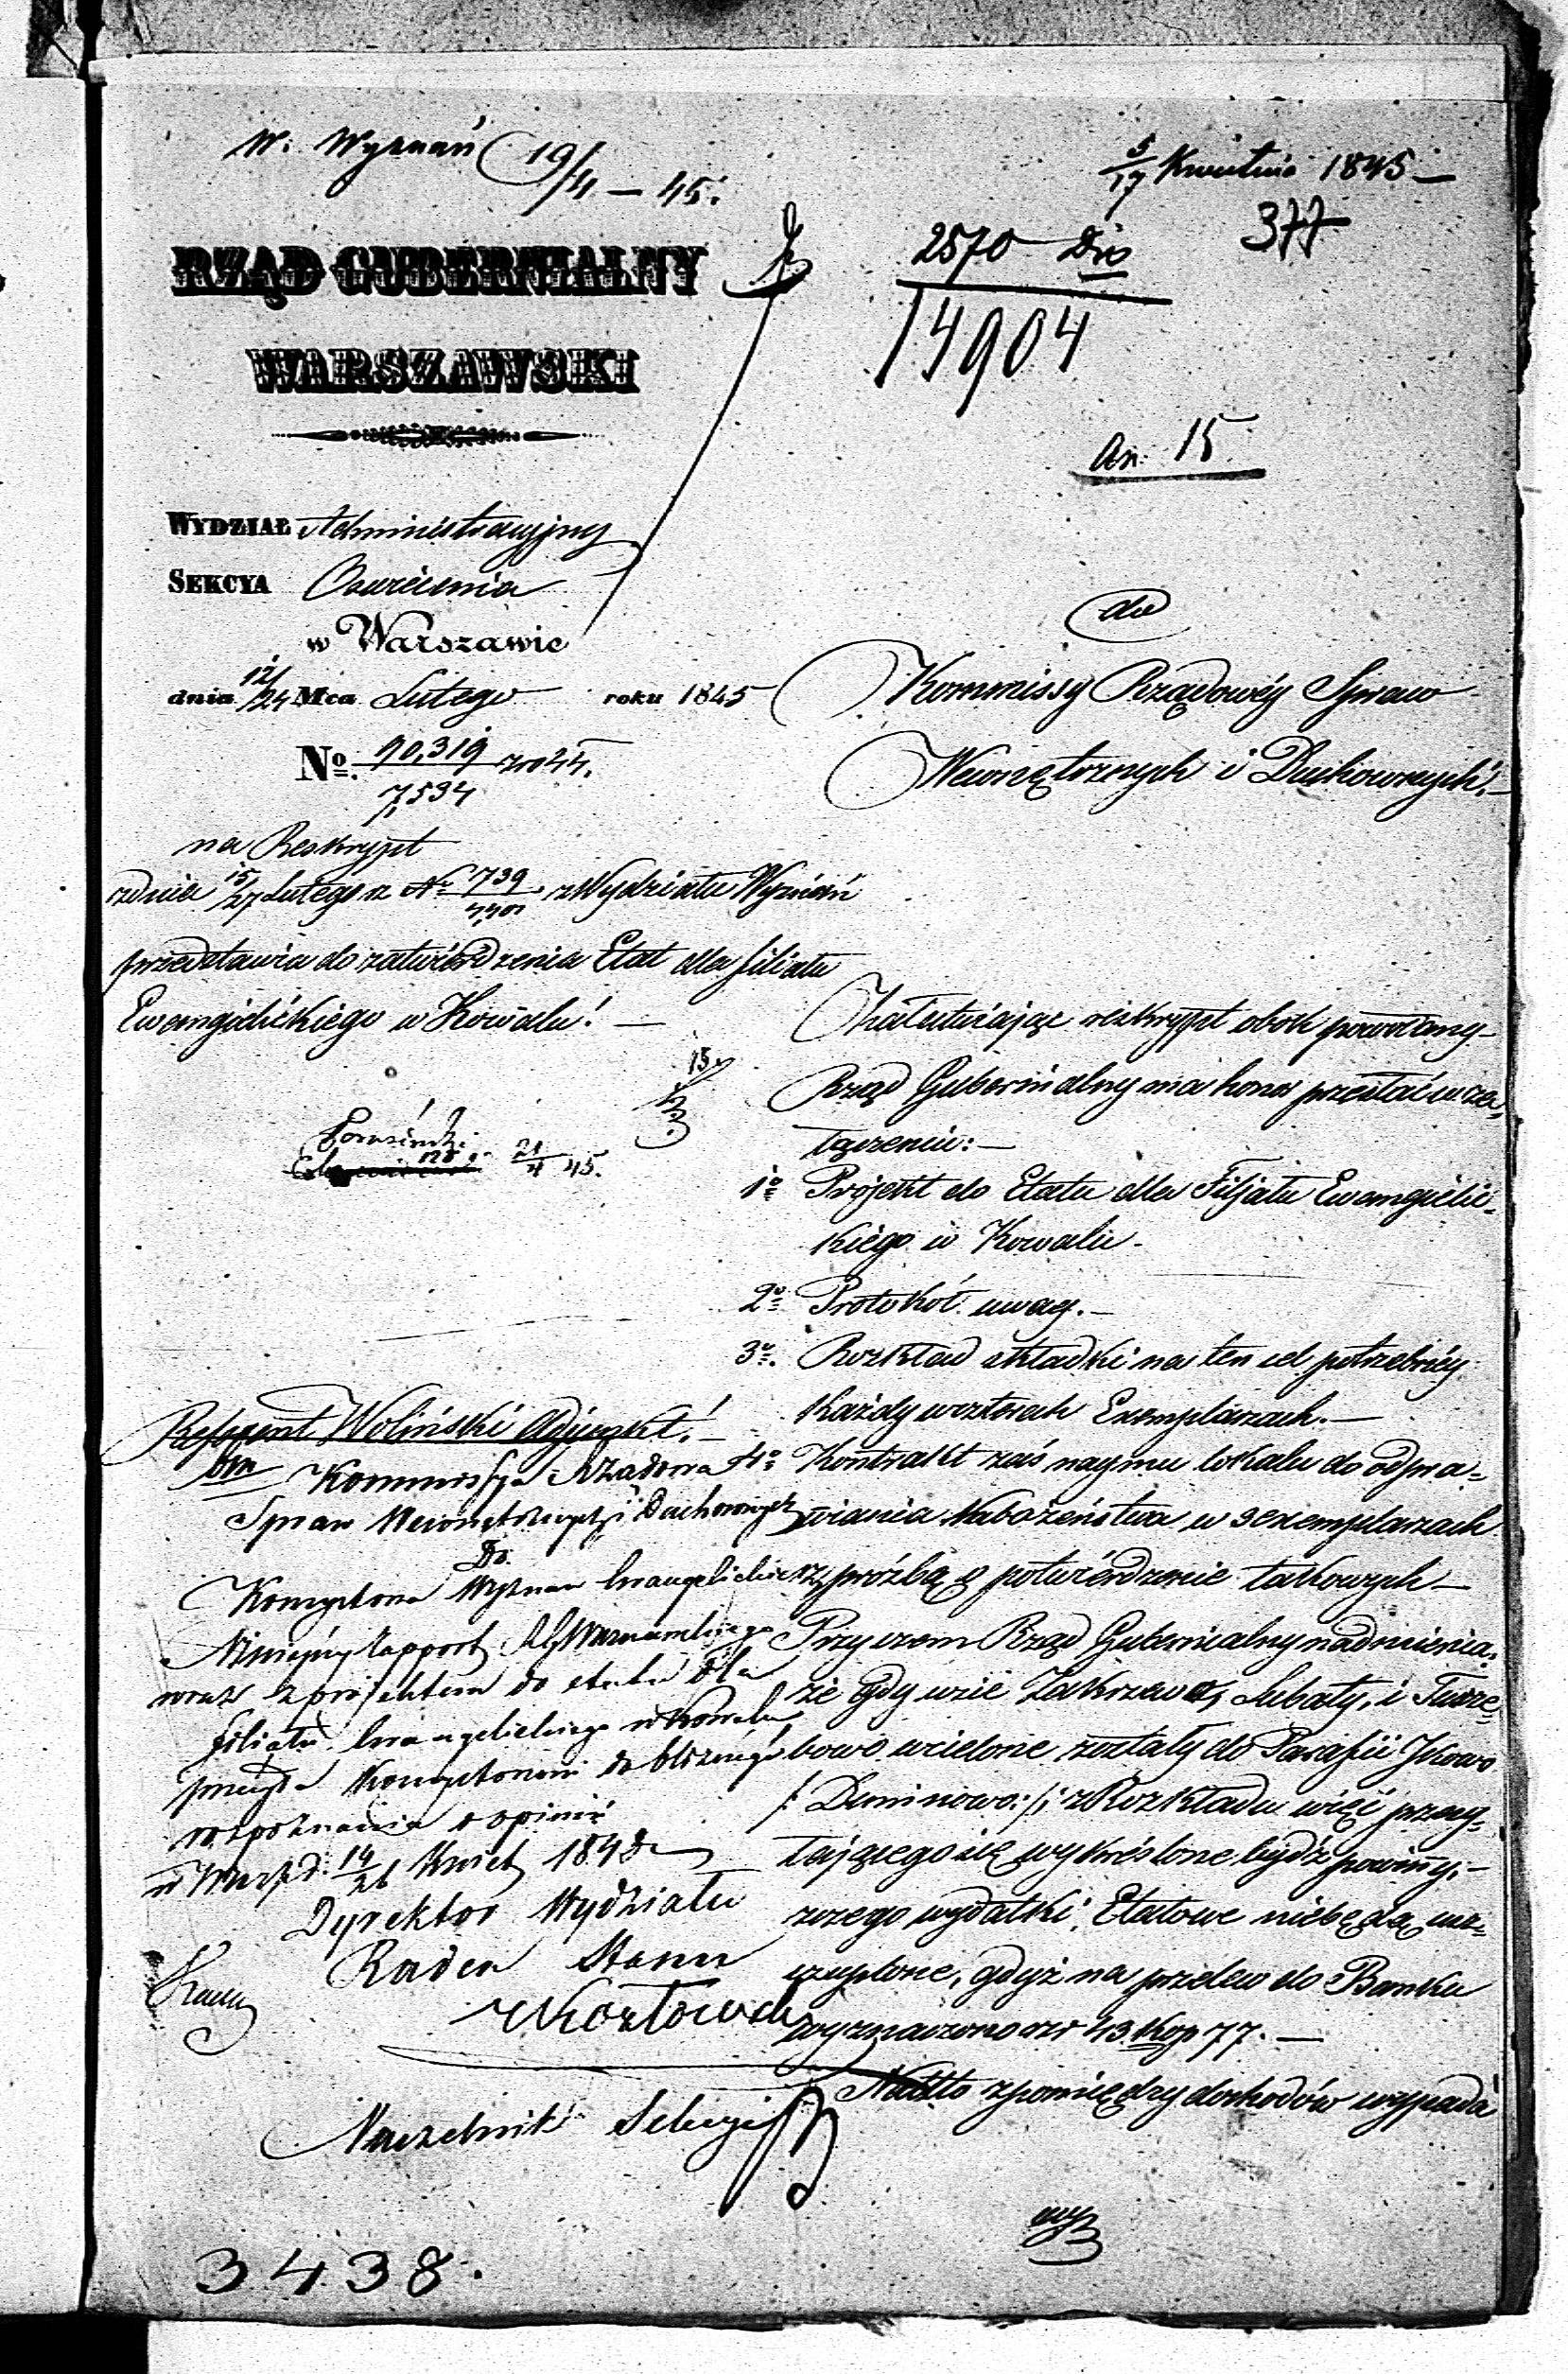 W. Wyznań 19/4 – 45.
5/17 Kwietnia 1845 –
377
2570 Dio
14904
RZĄD GUBERNIALNY
WARSZAWSKI
An. 15
WYDZIAŁ Administracyjny
SEKCYA Oświecenia
w Warszawie
dnia 12/24 Mca Lutego roku 1845
No. 90,319/7,534
na Reskrypt
z dnia 15/27 Lutego r. No 739 z Wydziału Wyznań
przedstawia do zatwierdzenia Etat dla filiału
Ewangielickiego w Kowalu! –
do
Kommissyi Rządowéy Spraw
Wewnętrznych i Duchownych. –
Załatwiając reskrypt obok powołany
Rząd Gubernialny ma honor przesłać w za=
łączeniu: –
1o Projekt do Etatu dla Filjału Ewangielic=
kiego w Kowalu –
2o Protokół uwag. –
3o Rozkład składki na ten cel potrzebnéy
każdy w czterech Exemplarzach. –
4o Kontrakt zaś naymu lokalu do odpra=
wiania Nabożeństwa w exemplarzach
z prożbą o potwierdzenie takowych –
Przyczem Rząd Gubernialny nadmienia,
że gdy wsie Zakrzewo, Lubaty, i Turze=
bowo wcielone zostały do Parafii
/: Duninowo :/ z Rozkładu więc przeny=
tającego się wykreślone bydź powinny. –
z czego wydatki Etatowe niebędą usz=
czuplone, gdyż na przelew do Banku
wyznaczono rsr 43 kop 77. –
Nadto zpomiędzy dochodów wypada
21/4 45.
Referent Woliński Adjunkt! –
Kommissya Rządowa
Spraw Wewnętrznych i Duchownych
Do
Konsystorza Wyznań Ewangelickich
Niniejszy rapport Rz. G. Warszawskiego
wraz z projektem do etatu dla
filiału Ewangelickiego w Kowalu
przesyła Konsystorzowi do bliższego
rozpoznania i opinii
Dyrektor Wydziału
Radca Stanu
Kozłowski
Naczelnik Sekcyi
3438.